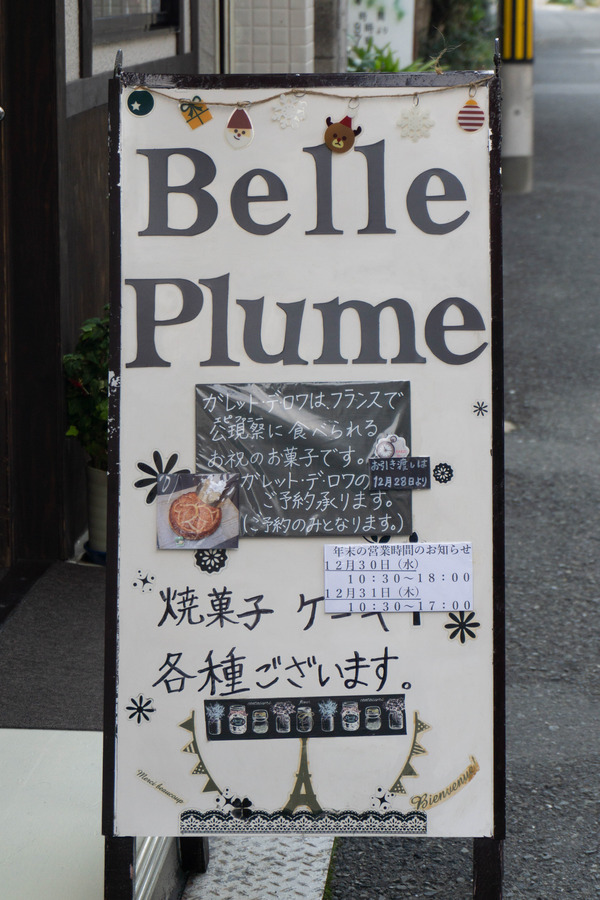 Belle
Plume
ガレット・デ・ロワは、フランスで
エピファニー
公現祭に食べられる
お祝のお菓子です。
ガレット・デ・ロワの
ご予約承ります。
(ご予約のみとなります。)
お引き渡しは
12月28日より
年末の営業時間のお知らせ
12月30日(水)
10:30〜18:00
12月31日(木)
10:30〜17:00
焼菓子 ケーキ
各種ございます。
Merci beaucoup
Bienvenue!